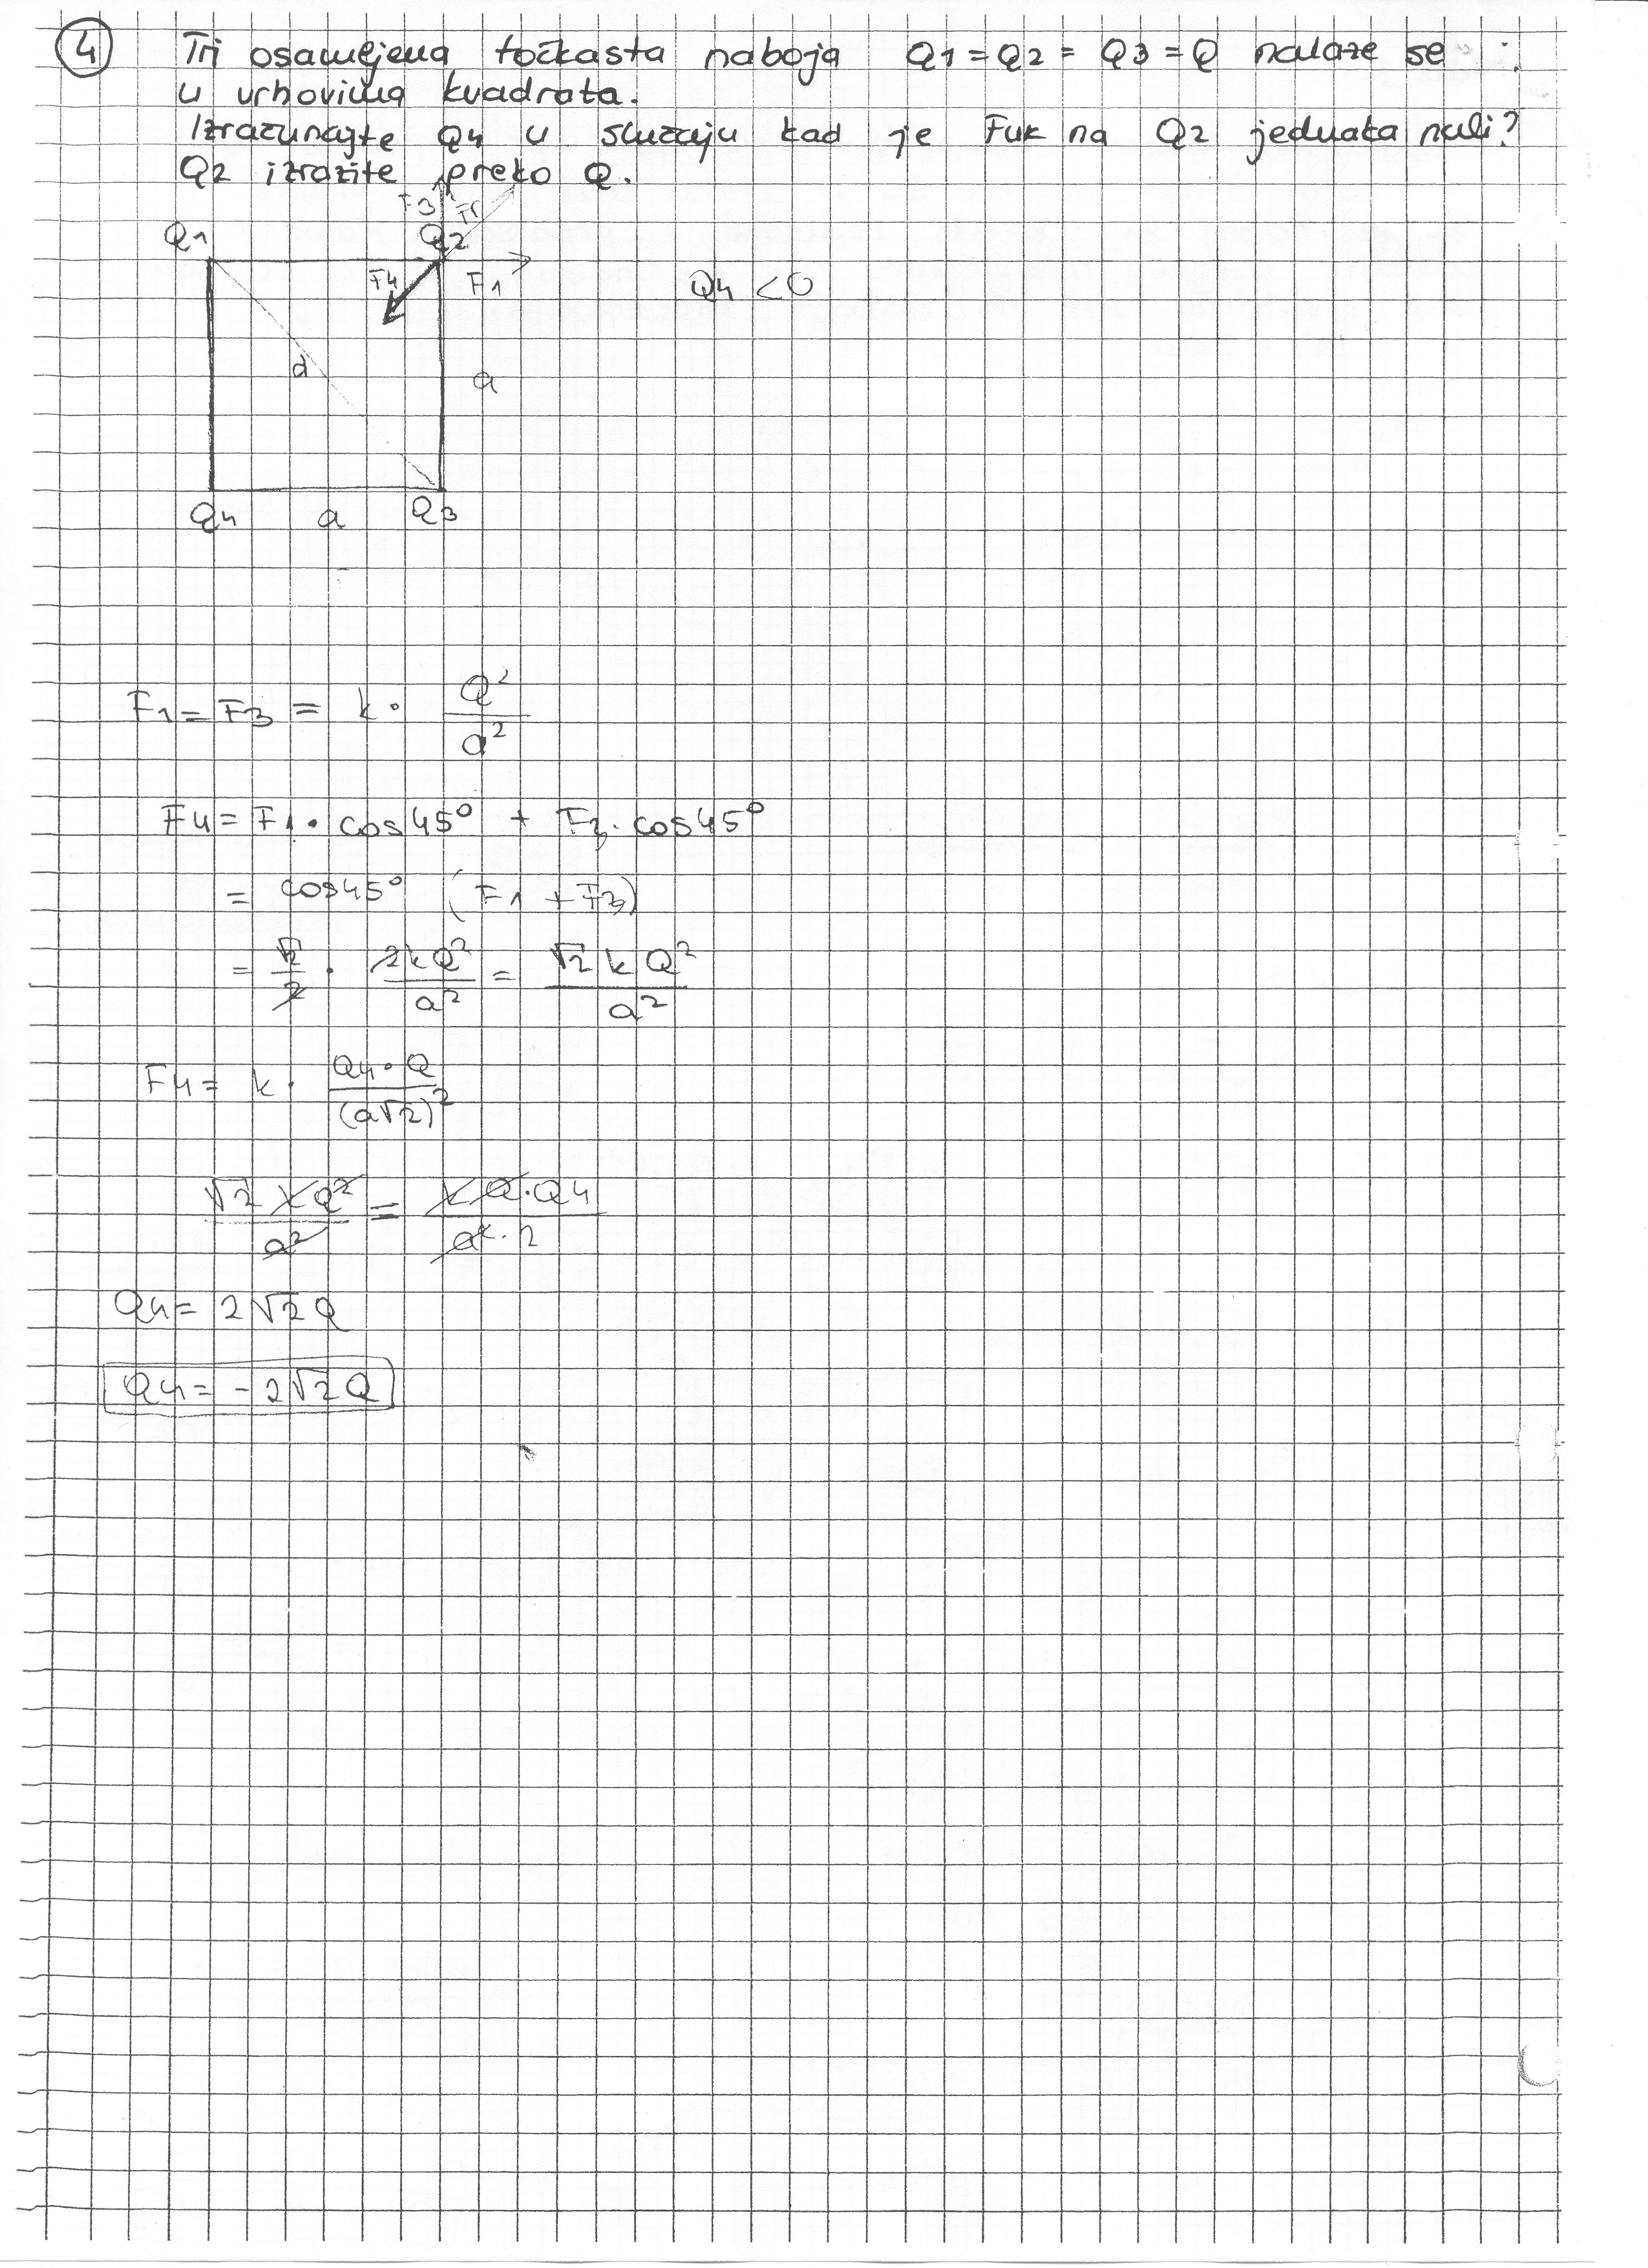 4 Tri osamljena točkasta naboja Q1 = Q2 = Q3 = Q nalaze se
u vrhovima kvadrata.
Izračunajte Q4 u slučaju kad je Fuk na Q2 jednaka nuli?
Q2 izrazite preko Q.
F3 Fr
Q1 Q2
F4 F1 Q4 < 0
d a
Q4 a Q3
F1 = F3 = k · Q² / a²
F4 = F1 · cos45° + F3 · cos45°
= cos45° (F1 + F3)
= √2/2 · 2kQ²/a² = √2 k Q²/a²
F4 = k · Q4 · Q / (a√2)²
√2 kQ² / a² = kQ · Q4 / a² · 2
Q4 = 2√2Q
Q4 = -2√2Q